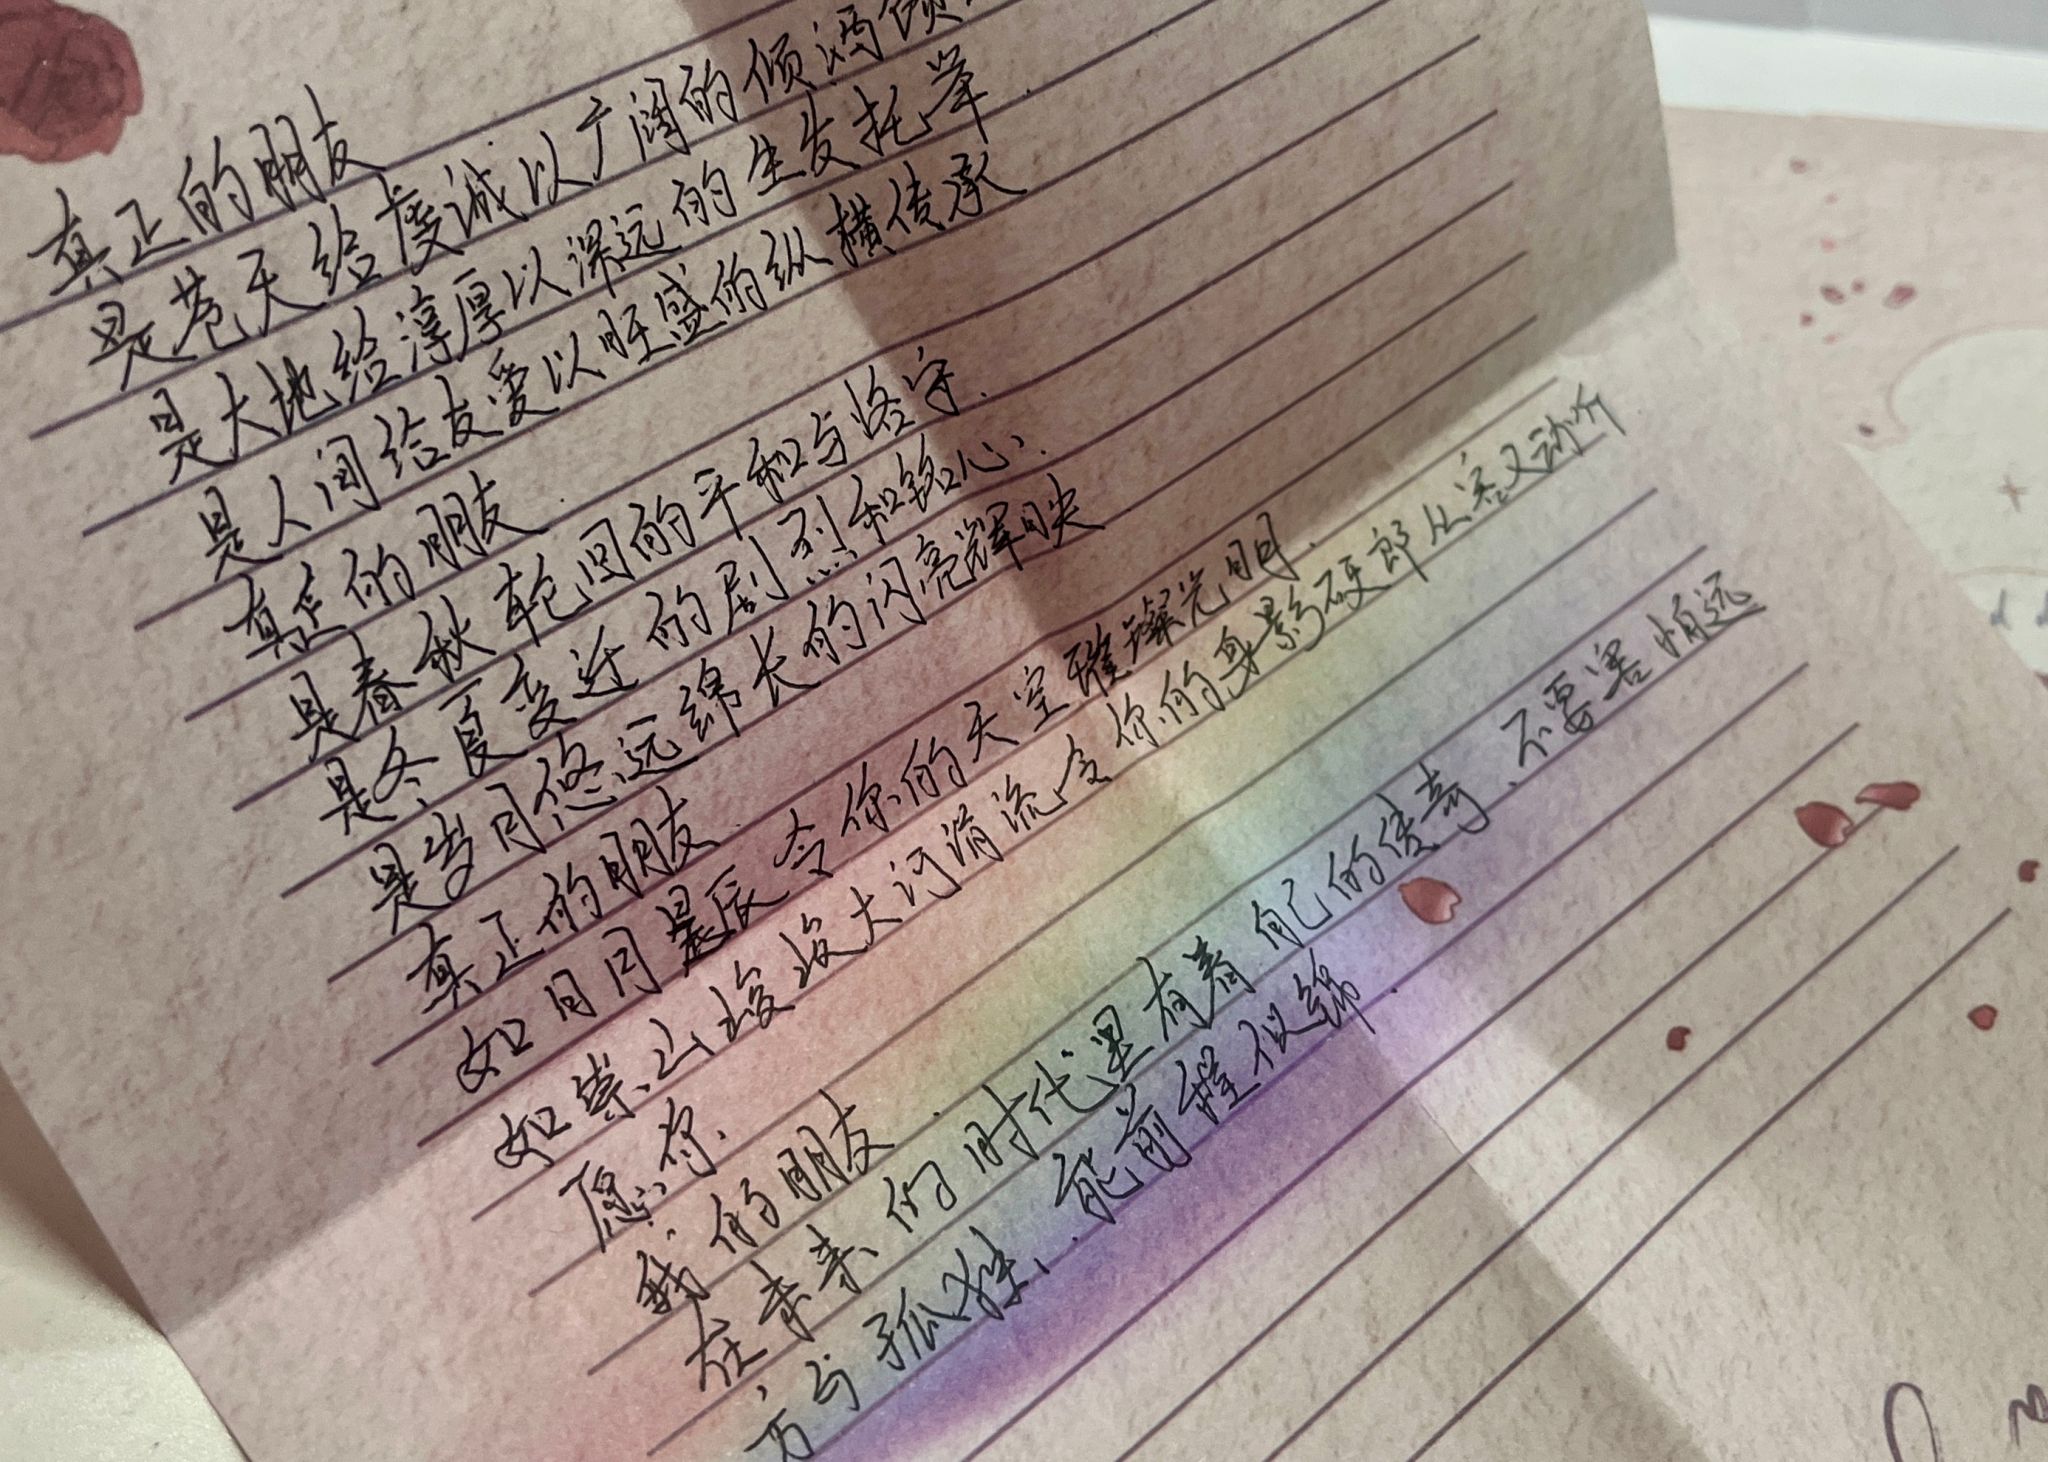 真正的朋友
是苍天给虔诚以广阔的倾洒
是大地给淳厚以深远的生发托举
是人间给友爱以旺盛的纵横传承
真正的朋友
是春秋轮回的平和与恪守.
是冬夏变迁的剧烈和铭心.
是岁月悠远绵长的闪亮辉映
真正的朋友
如日月星辰令你的天空璀璨光明.
如崇山峻岭大河涓流令你的身影硬郎从容又动听
愿你.
我的朋友.
在未来的时代里有着自己的传奇、不要害怕远
方与孤独、能前程似锦.